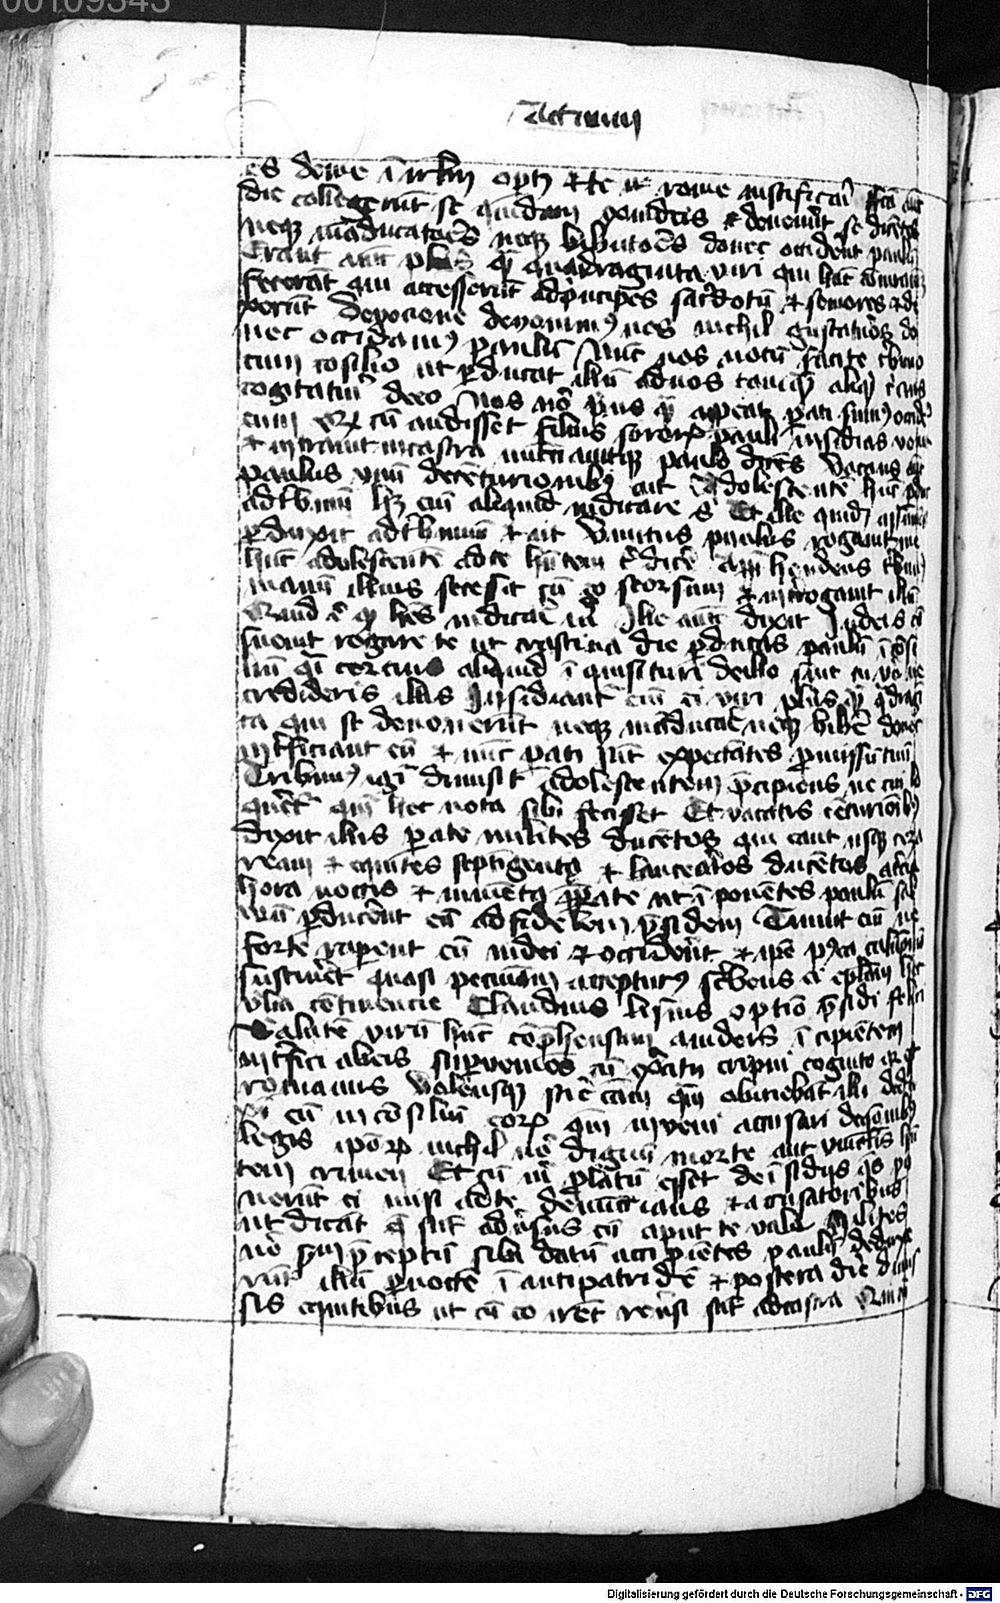 00109343
Actuum
es de me i irl'm oportet et te et rome
die collegerunt se quidam ex iudeis et devoverunt se dicentes
neq manducatoros neq bibituros donec occiderent paulum
Erant aut plus qm quadraginta viri qui hanc coniuracionem
fecerant qui accesserunt ad principes sacerdotum et seniores et di
xerunt devocione devovimus nos nichil gustaturos do
nec occidamus paulum Nunc vos notum facite tribuno
cum cosilio ut producat illum ad vos tamquam aliquid certius
cogituri de eo Nos vero prius quam appropiet parati sumus occidere
eum Quod cum audisset filius sororis pauli insidias venit
et intravit in castra nunciavitque paulo Vocans autem
paulus unum de centurionibus ait adolescentem hunc perduc
ad tribunum habet enim aliquid indicare Et ille quidem assumens
perduxit ad tribunum et ait vinctus paulus rogavit me
hunc adolescentem ad te habentem dicere apprehendens tribunus
manum illius secessit cum eo seorsum et interrogavit illum
Quid est quod habes indicare michi Ille autem dixit Iudeis con
venit rogare te ut crastina die producas paulum in consi
lium quasi cercius aliquid inquisituri de illo sint tu vero ne
credideris illis Insidiantur enim ei viri plus quam quadragin
ta qui se devoverunt neque manducare neque bibere donec
interficiant eum et nunc parati sunt expectantes promissum tuum
Tribunus igitur dimisit adolescentem precipiens ne cui lo
queretur quoniam hec nota sibi fecisset Et vocatis centurionibus
dixit illis parate milites ducentos qui eant usque cesa
ream et equites septuaginta et lancearios ducentos a tercia
hora noctis et iumenta preparate ut imponentes paulum sal
vum perducerent eum ad felicem presidem Timuit enim ne
forte raperent eum iudei et occiderent et ipse postea calumpniam
sustineret quasi pecuniam accepturus scribens ei epistolam hec
verba continencie Claudius lisias optimo presidi felici
Salutem virum hunc comprehensum a iudeis incipientem
interfici ab eis superveniens cum exercitu eripui cognito quia
romanus volensque scire causam quam obiciebant illi dedu
xi eum in consilium eorum quem inveni accusari de questionibus
legis ipsorum nichil vero dignum morte aut vinculis haben
tem crimen Et cum michi perlatum esset de insidiis quas pa
raverunt ei misi ad te denuncians et accusatoribus
ut dicant que sunt adversus eum aput te vale Milites
vero secundum preceptum sibi datum accipientes paulum deduxe
runt illum per noctem in antipatridem et postera die dimis
sis equitibus ut cum eo irent reversi sunt ad castra Qui cum
Digitalisierung gefördert durch die Deutsche Forschungsgemeinschaft - DFG